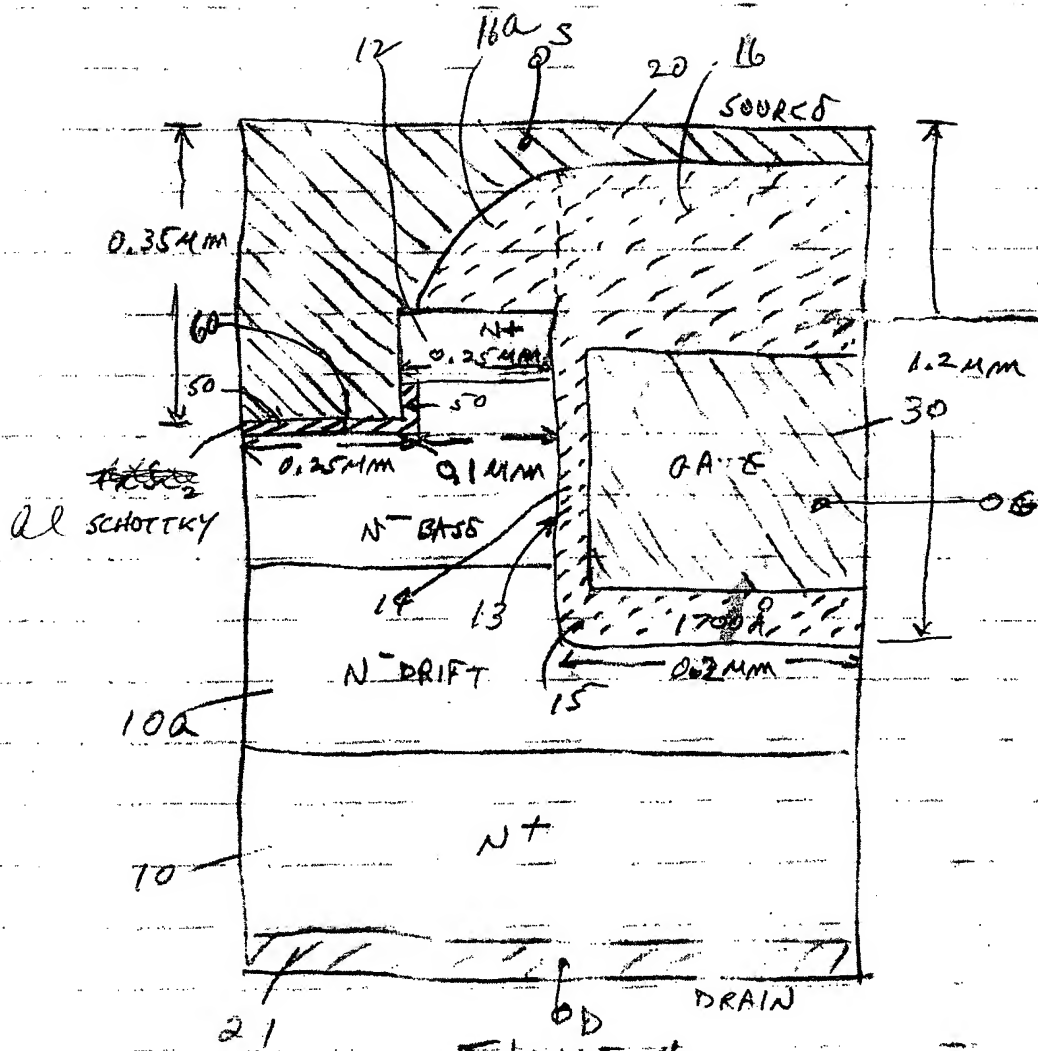 12
16a
S
20
16
SOURCE
0.35 µm
60
50
N+
0.25 µm
50
1.2 µm
30
0.25 µm
0.1 µm
GATE
G
Al SCHOTTKY
N- BASE
14
13
1700Å
0.2 µm
N- DRIFT
15
10a
N+
70
21
D
DRAIN